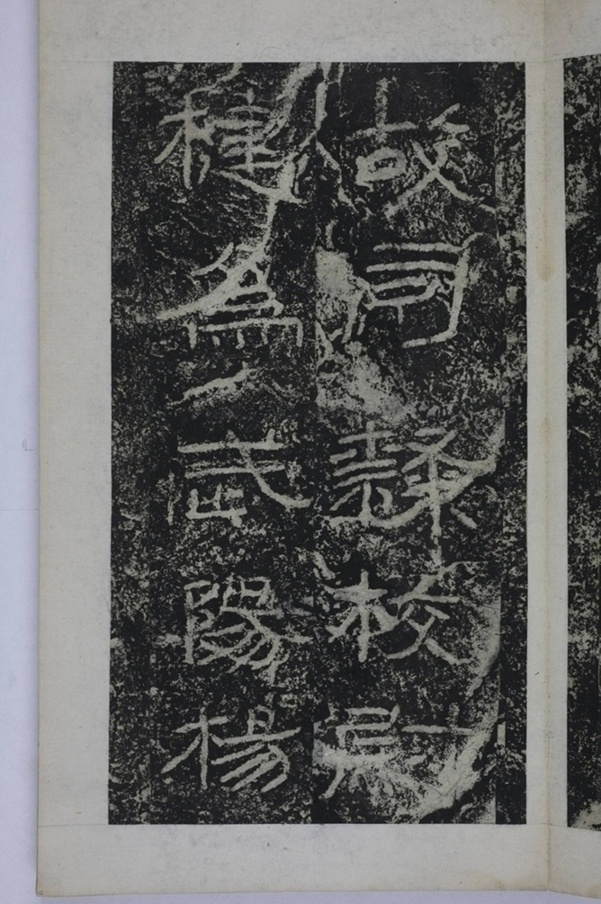 故司隸校尉
楗爲武陽楊